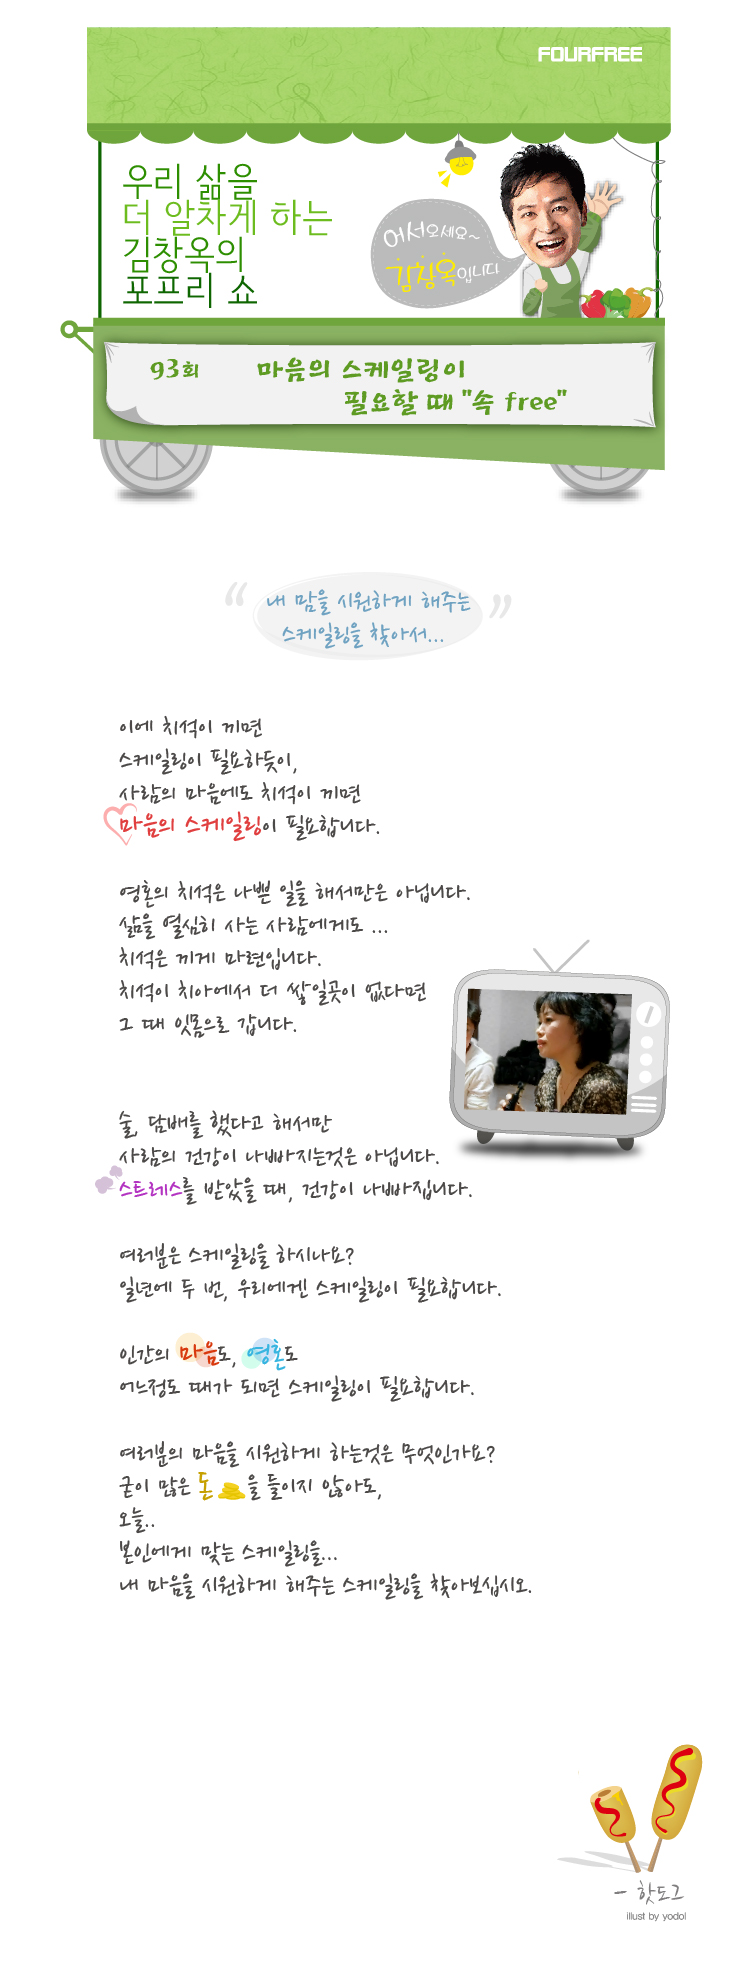 FOURFREE
우리 삶을
더 알차게 하는
김창옥의
포프리 쇼
어서오세요~
김창옥입니다
93회 마음의 스케일링이
필요할 때 "속 free"
“ 내 맘을 시원하게 해주는 ”
스케일링을 찾아서...
이에 치석이 끼면
스케일링이 필요하듯이,
사람의 마음에도 치석이 끼면
마음의 스케일링이 필요합니다.
영혼의 치석은 나쁜 일을 해서만은 아닙니다.
삶을 열심히 사는 사람에게도 ...
치석은 끼게 마련입니다.
치석이 치아에서 더 쌓일곳이 없다면
그 때 잇몸으로 갑니다.
술, 담배를 했다고 해서만
사람의 건강이 나빠지는것은 아닙니다.
스트레스를 받았을 때, 건강이 나빠집니다.
여러분은 스케일링을 하시나요?
일년에 두 번, 우리에겐 스케일링이 필요합니다.
인간의 마음도, 영혼도
어느정도 때가 되면 스케일링이 필요합니다.
여러분의 마음을 시원하게 하는것은 무엇인가요?
굳이 많은 돈 을 들이지 않아도,
오늘..
본인에게 맞는 스케일링을...
내 마음을 시원하게 해주는 스케일링을 찾아보십시오.
- 핫도그
illust by yodol